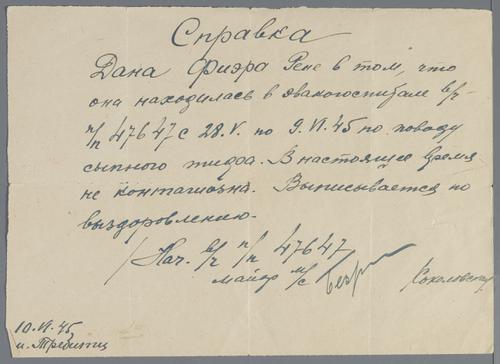 Справка
Дана Фиэра Рене в том, что
она находилась в эвакогоспитале в/ч
п/п 47647 с 28.V. по 9.VI.45 по поводу
сыпного тифа. В настоящее время
не контагиозна. Выписывается по
выздоровлению.
/Нач. в/ч п/п 47647
майор м/с /Соколовск
10.VI.45
н. Требитц